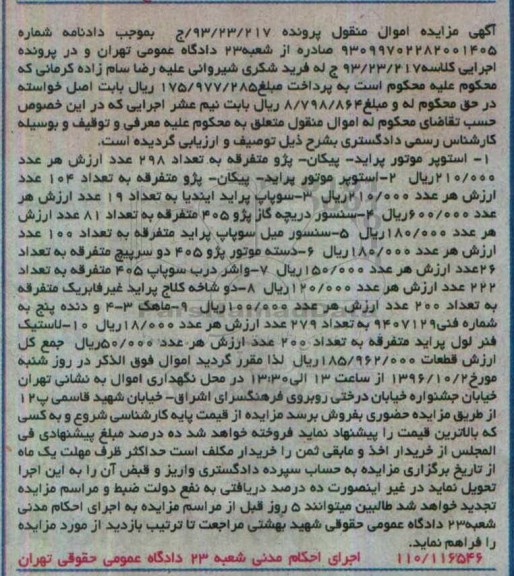 آگهی مزایده اموال منقول پرونده ۹۳/۲۳/۲۱۷/ج بموجب دادنامه شماره
۹۳۰۹۹۷۰۲۲۸۲۰۰۱۴۰۵ صادره از شعبه۲۳ دادگاه عمومی تهران و در پرونده
اجرایی کلاسه۹۳/۲۳/۲۱۷ ج له فرید شکری شیروانی علیه رضا سام زاده کرمانی که
محکوم علیه محکوم است به پرداخت مبلغ۱۷۵/۹۷۷/۲۸۵ ریال بابت اصل خواسته
در حق محکوم له و مبلغ۸/۷۹۸/۸۶۴ ریال بابت نیم عشر اجرایی که در این خصوص
حسب تقاضای محکوم له اموال منقول متعلق به محکوم علیه معرفی و توقیف و بوسیله
کارشناس رسمی دادگستری بشرح ذیل توصیف و ارزیابی گردیده است.
۱- استوپر موتور پراید- پیکان- پژو متفرقه به تعداد ۲۹۸ عدد ارزش هر عدد
۲۱۰/۰۰۰ریال ۲-استوپر موتور پراید- پیکان- پژو متفرقه به تعداد ۱۰۴ عدد
ارزش هر عدد ۲۱۰/۰۰۰ریال ۳-سوپاپ پراید ایندیا به تعداد ۱۹ عدد ارزش هر
عدد ۶۰۰/۰۰۰ریال ۴-سنسور دریچه گاز پژو ۴۰۵ متفرقه به تعداد ۸۱ عدد ارزش
هر عدد ۱۸۰/۰۰۰ریال ۵-سنسور میل سوپاپ پراید متفرقه به تعداد ۱۰۰ عدد
ارزش هر عدد ۱۸۰/۰۰۰ریال ۶-دسته موتور پژو ۴۰۵ دو سرپیچ متفرقه به تعداد
۲۶عدد ارزش هر عدد ۱۵۰/۰۰۰ریال ۷-واشر درب سوپاپ ۴۰۵ متفرقه به تعداد
۲۲۲ عدد ارزش هر عدد ۱۲۰/۰۰۰ریال ۸-دو شاخه کلاچ پراید غیرفابریک متفرقه
به تعداد ۲۰۰ عدد ارزش هر عدد ۱۰۰/۰۰۰ریال ۹-ماهک ۳-۴ و دنده پنج به
شماره فنی۹۴۰۷۱۲۹ به تعداد ۲۷۹ عدد ارزش هر عدد ۱۸/۰۰۰ریال ۱۰-لاستیک
فنر لول پراید متفرقه به تعداد ۲۰۰ عدد ارزش هر عدد ۵۰/۰۰۰ریال جمع کل
ارزش قطعات ۱۸۵/۹۶۲/۰۰۰ریال لذا مقرر گردید اموال فوق الذکر در روز شنبه
مورخ۱۳۹۶/۱۰/۲ از ساعت ۱۳ الی۱۳:۳۰ در محل نگهداری اموال به نشانی تهران
خیابان جشنواره خیابان درختی روبروی فرهنگسرای اشراق- خیابان شهید قاسمی پ۱۲
از طریق مزایده حضوری بفروش برسد مزایده از قیمت پایه کارشناسی شروع و به کسی
که بالاترین قیمت را پیشنهاد نماید فروخته خواهد شد ده درصد مبلغ پیشنهادی فی
المجلس از خریدار اخذ و مابقی ثمن را خریدار مکلف است حداکثر ظرف مهلت یک ماه
از تاریخ برگزاری مزایده به حساب سپرده دادگستری واریز و قبض آن را به این اجرا
تحویل نماید در غیر اینصورت ده درصد دریافتی به نفع دولت ضبط و مراسم مزایده
تجدید خواهد شد طالبین میتوانند ۵ روز قبل از مراسم مزایده به اجرای احکام مدنی
شعبه۲۳ دادگاه عمومی حقوقی شهید بهشتی مراجعت تا ترتیب بازدید از مورد مزایده
را فراهم نماید.
۱۱۰/۱۱۶۵۴۶ اجرای احکام مدنی شعبه ۲۳ دادگاه عمومی حقوقی تهران